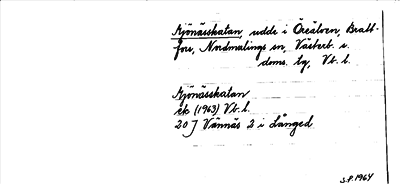 Ajönässkatan, udde i Öreälven, Bratt-
fors, Nordmalings sn, Västerb. v.
doms. lg, Vb. l.
Ajönässkatan
ek (1963) Vb. l.
20 J Vännäs 2 i Långed
S.P. 1964